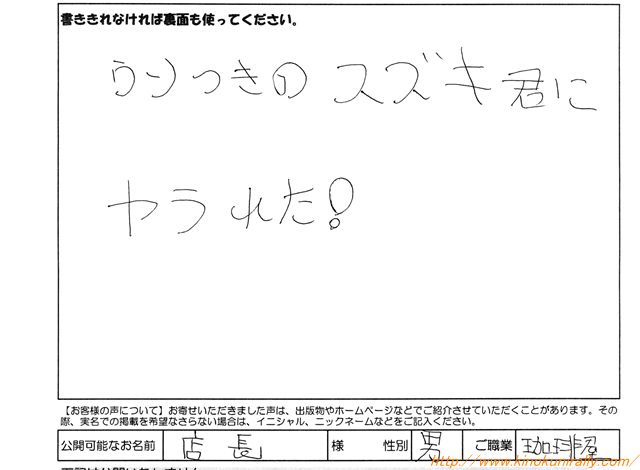 書ききれなければ裏面も使ってください。
ウソつきのスズキ君に
ヤラれた!
【お客様の声について】お寄せいただきました声は、出版物やホームページなどでご紹介させていただくことがあります。その
際、実名での掲載を希望なさらない場合は、イニシャル、ニックネームなどをご記入ください。
公開可能なお名前 店長 様 性別 男 ご職業 珈琲沼